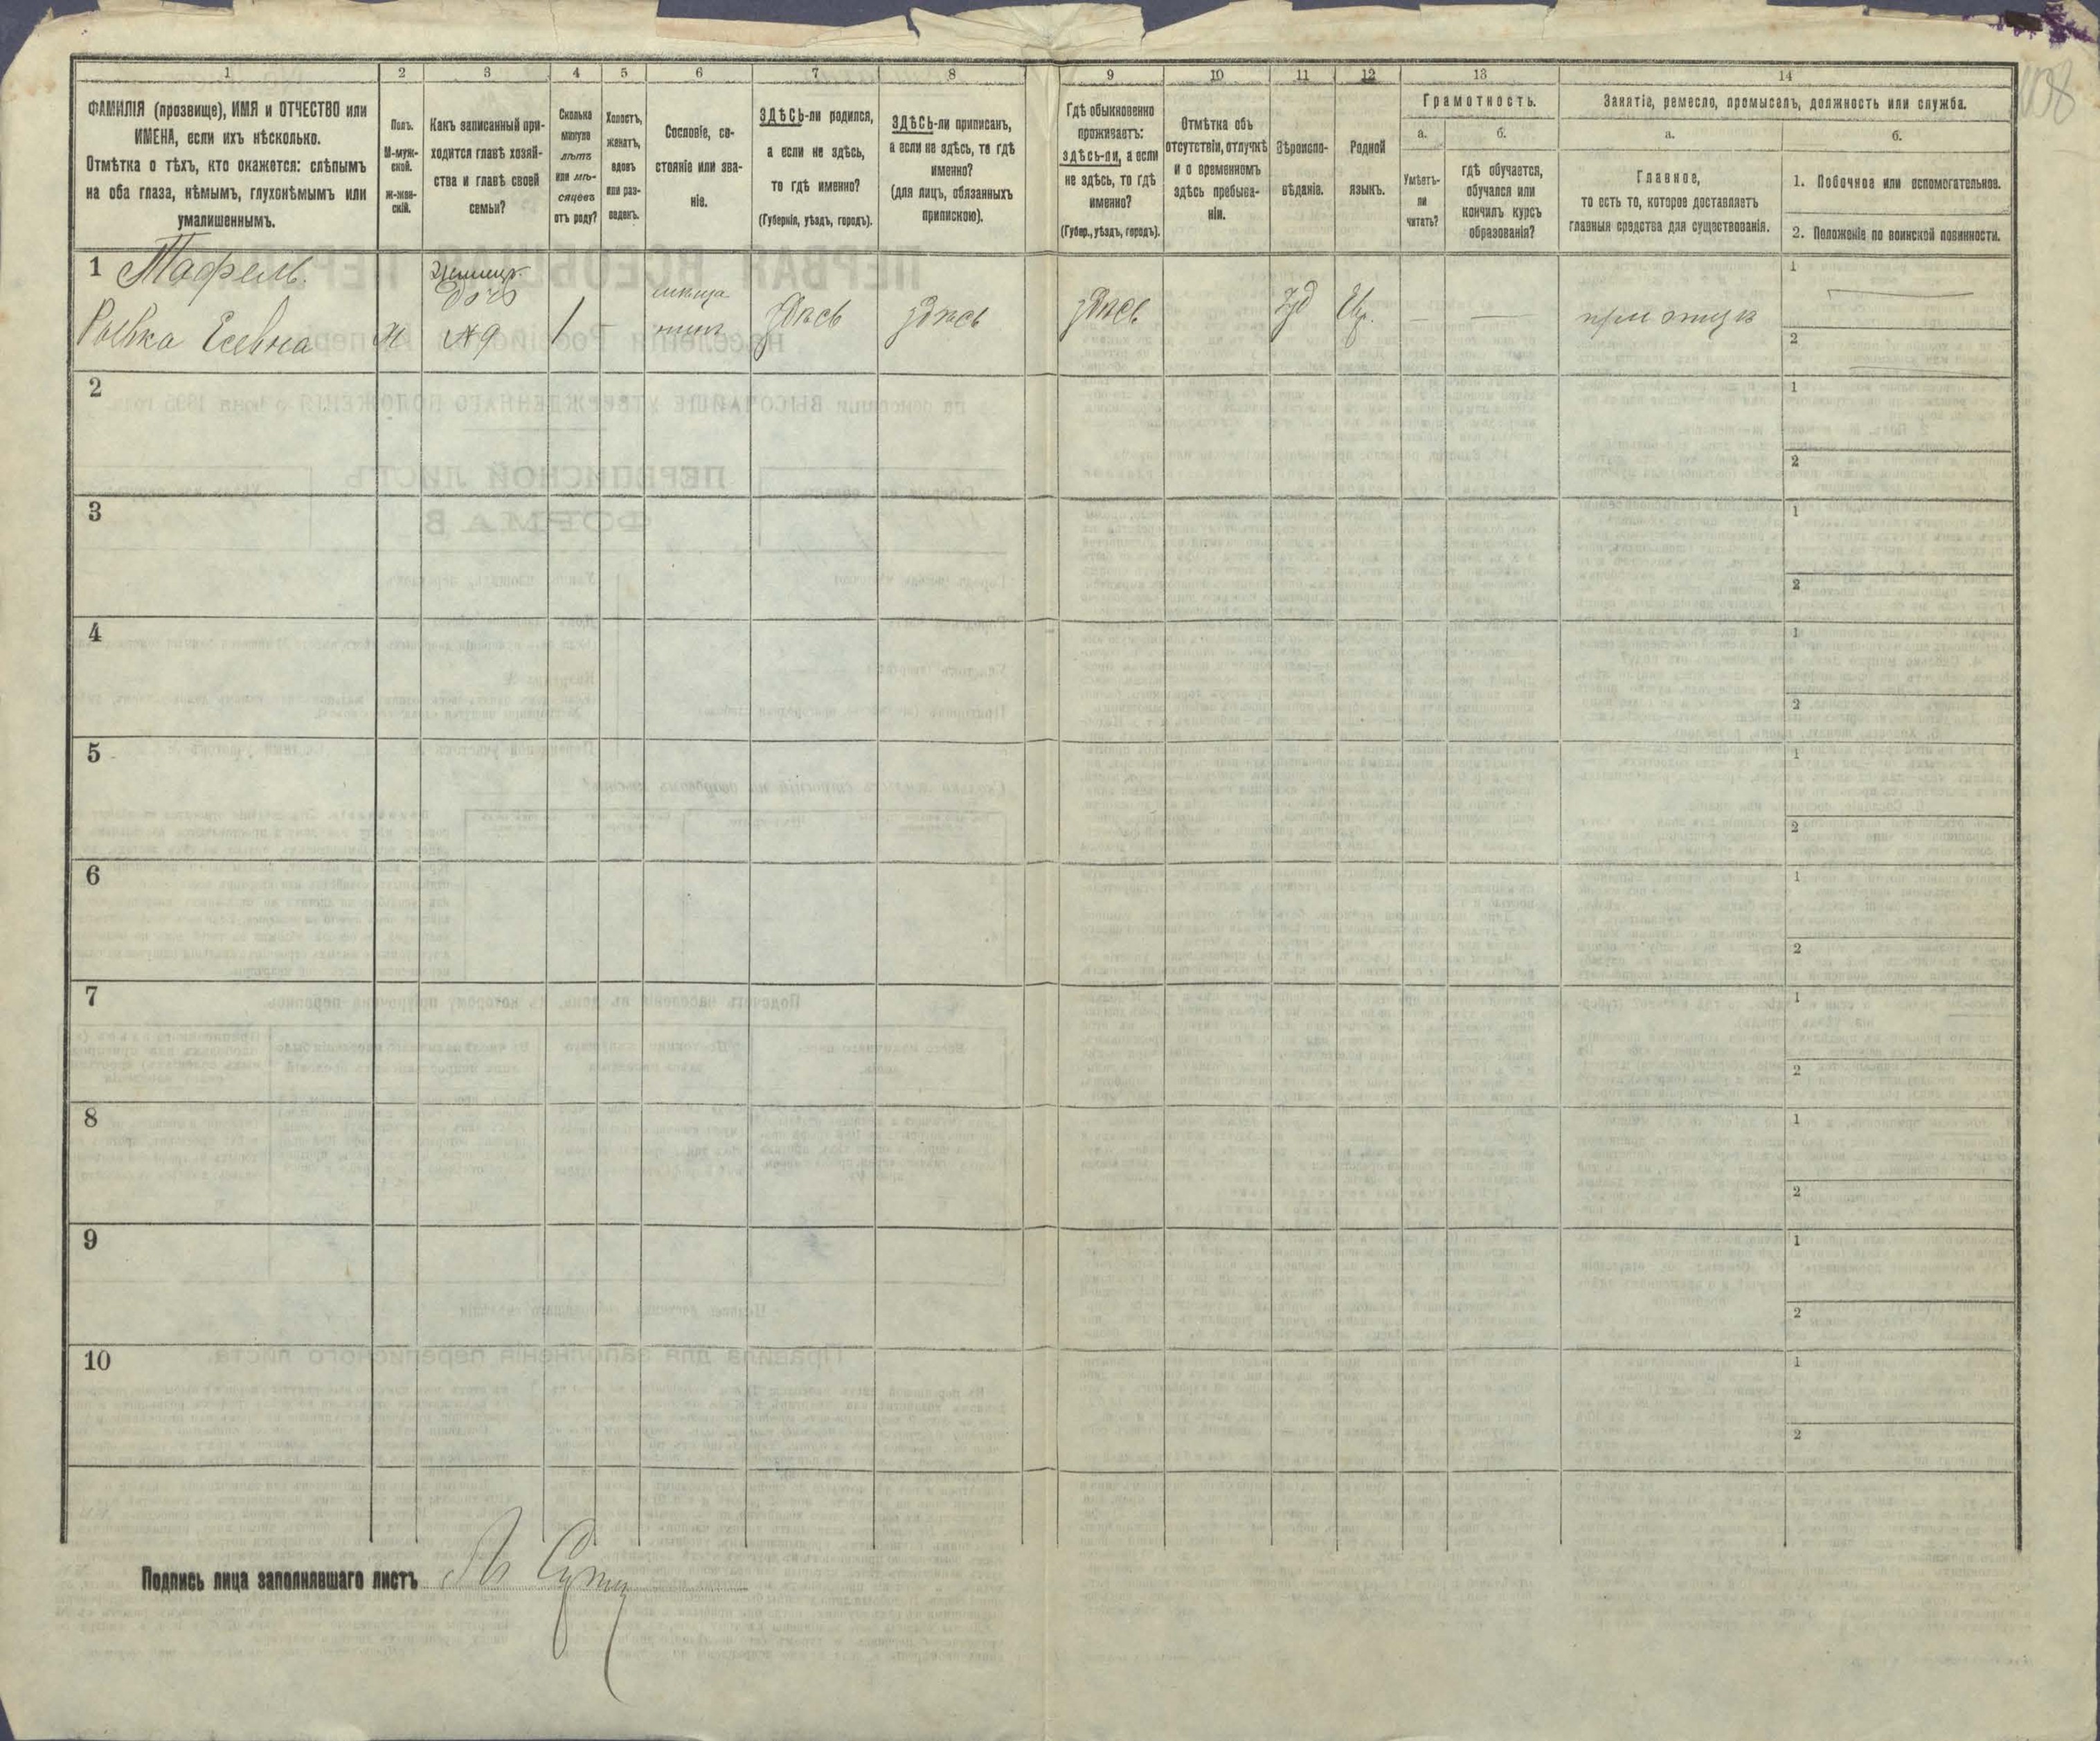 1 2 3 4 5 6 7 8 9 10 11 12 13 14
ФАМИЛІЯ (прозвище), ИМЯ и ОТЧЕСТВО или
ИМЕНА, если ихъ нѣсколько.
Отмѣтка о тѣхъ, кто окажется: слѣпымъ
на оба глаза, нѣмымъ, глухонѣмымъ или
умалишеннымъ.
Полъ.
М-муж-
ской.
ж-жен-
скій.
Какъ записанный при-
ходится главѣ хозяй-
ства и главѣ своей
семьи?
Сколько
минуло
лѣтъ
или мѣ-
сяцевъ
отъ роду?
Холостъ,
женатъ,
вдовъ
или раз-
веденъ.
Сословіе, со-
стояніе или зва-
ніе.
ЗДѢСЬ-ли родился,
а если не здѣсь,
то гдѣ именно?
(Губернія, уѣздъ, городъ).
ЗДѢСЬ-ли приписанъ,
а если не здѣсь, то гдѣ
именно?
(для лицъ, обязанныхъ
припискою).
Гдѣ обыкновенно
проживаетъ:
здѣсь-ли, а если
не здѣсь, то гдѣ
именно?
(Губер., уѣздъ, городъ).
Отмѣтка объ
отсутствіи, отлучкѣ
и о временномъ
здѣсь пребыва-
ніи.
Вѣроиспо-
вѣданіе.
Родной
языкъ.
Грамотность.
а.
Умѣетъ-
ли
читать?
б.
гдѣ обучается,
обучался или
кончилъ курсъ
образованія?
Занятіе, ремесло, промыселъ, должность или служба.
а.
Главное,
то есть то, которое доставляетъ
главныя средства для существованія.
б.
1. Побочное или вспомогательное.
2. Положеніе по воинской повинности.
1 Тафель
Рывка Есевна
ж
дочь
№ 9
1
-
здѣсь
здѣсь
здѣсь
Іуд
Евр.
—
—
при отцѣ
1
2
2
1
2
3
1
2
4
1
2
5
1
2
6
1
2
7
1
2
8
1
2
9
1
2
10
1
2
Подпись лица заполнявшаго листъ